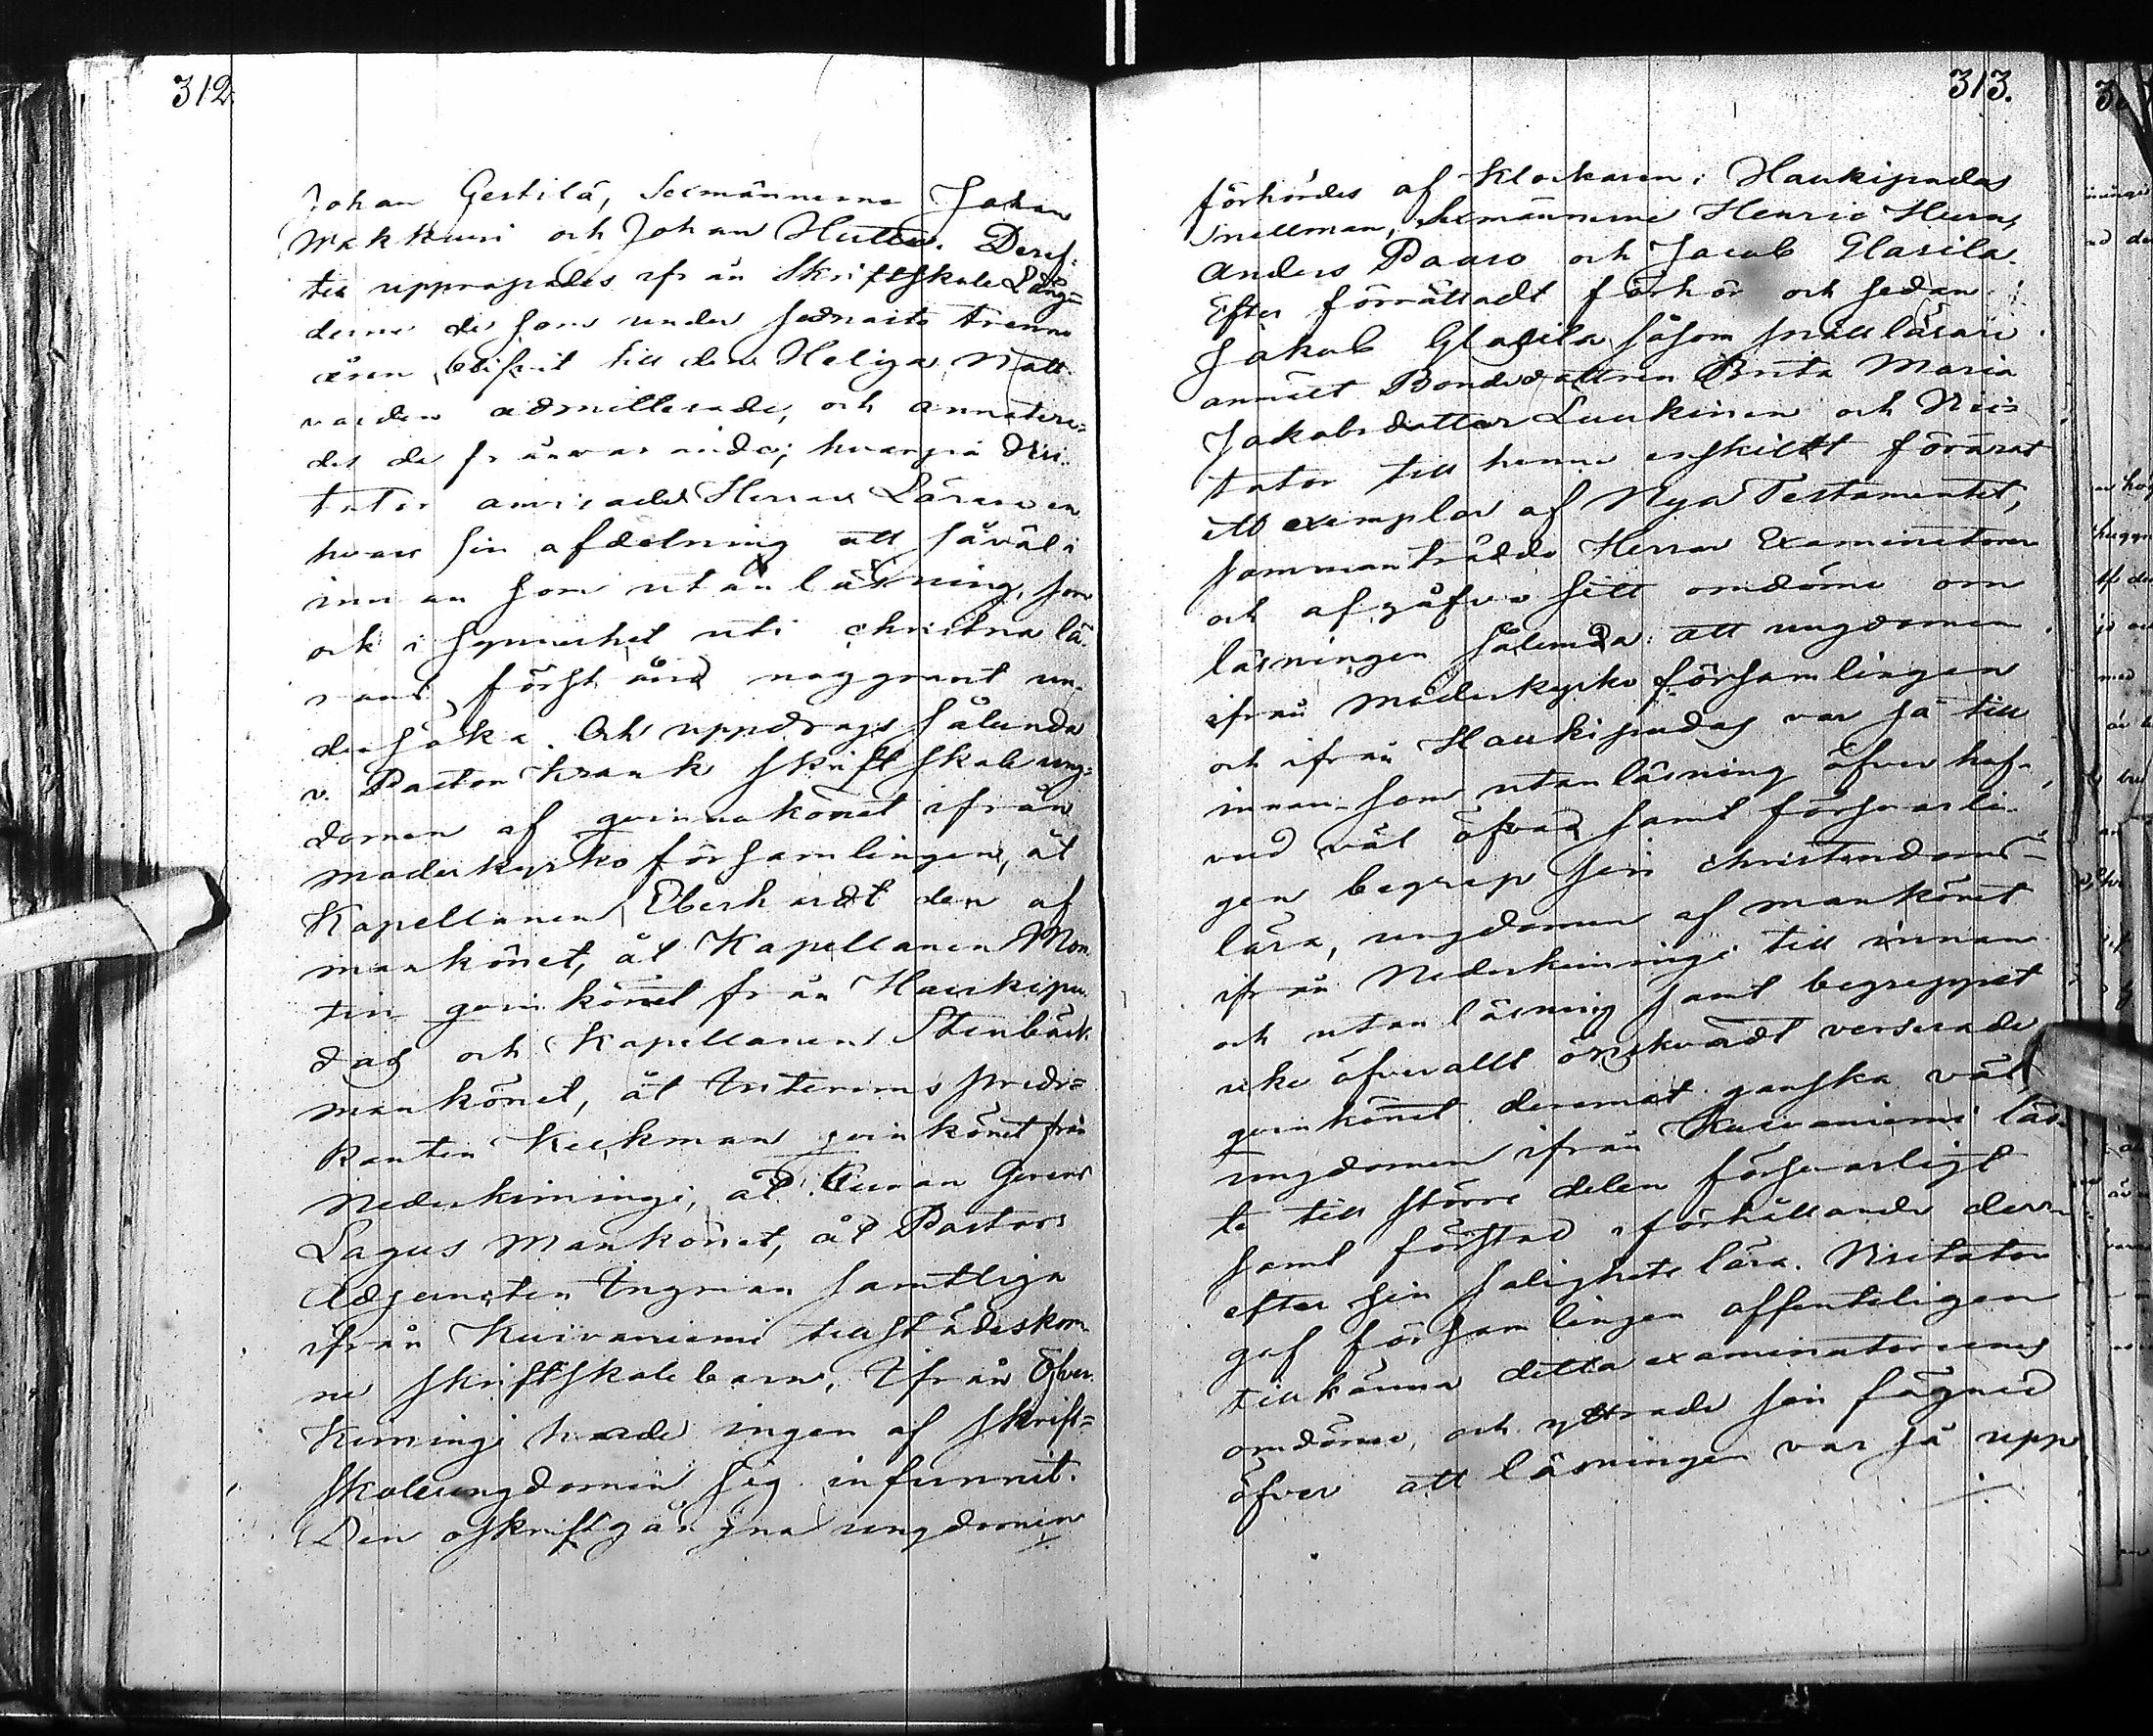 312.
Johan Gestilä, Sexmännerne Johan
Makkuri och Johan Hutta. Deref-
ter uppropades ifrån Skriftskole Läng-
derne de som under sednaste trenne
åren blifvit till den Heliga Natt-
varden admitterade, och annotera-
des de frånvarande; hvarpå Visi-
tator anvisade Herrar Lärare en
hvar sin afdelning att såväl i
innan som utanläsning, som
ock i synnerhet uti christna lä-
rans förstånd noggrant un-
dersöka. Och uppdrogs sålunda
v. Pastor Krank skriftskole ung-
domen af qvinnokönet ifrån
moderkyrko församlingen, åt
Kapellanen Eberhardt den af
mankönet, åt Kapellanen Mon-
tin qvinkönet från Haukipu-
das och Kapellanen Stenbäck
mankönet, åt Interims predi-
kanten Keckman qvinkönet från
Nederkiminge, åt Curam Gerens
Lagus Mankönet, åt Pastors
Adjuncten Ingman samtliga
ifrån Kuivaniemi tillstädeskom-
ne skriftskolebarn. Ifrån Öfver
Kiminge hade ingen af skrift-
skoleungdomen sig infunnit.
Den oskriftgångna ungdomen
313.
förhördes af Klockaren i Haukipudas
Snellman, Sexmännerne Henric Hura,
Anders Paaso och Jacob Glasila.
Efter förrättadt förhör och sedan
Jakob Glasila såsom prilläsare
anmält Bondedottren Brita Maria
Jakobsdotter Luukinen och Visi-
tator till henne enskildt förärat
ett exemplar af Nya Testamentet,
sammanträdde Herrar Examinatorer
och afgåfvo sitt omdöme om
läsningen sålunda: att ungdomen
ifrån moderkyrko församlingen
och ifrån Haukipudas var så till
innan- som utanläsning öfver huf-
vud väl öfvad samt försvarli-
gen begrep sin christendoms-
lära, ungdomen af mankönet
ifrån Nederkiminge till innan
och utanläsning samt begreppet
icke öfverallt önskvärdt verserade
qvinkönet deremot ganska väl,
ungdomen ifrån Kuivaniemi läs-
te till större delen försvarligt
samt förstod i förhållande der-
efter sin salighets lära. Visitator
gaf församlingen offenteligen
tillkänna detta examinatorernes
omdöme, och yttrade sin fägnad
öfver att läsningen var så upp